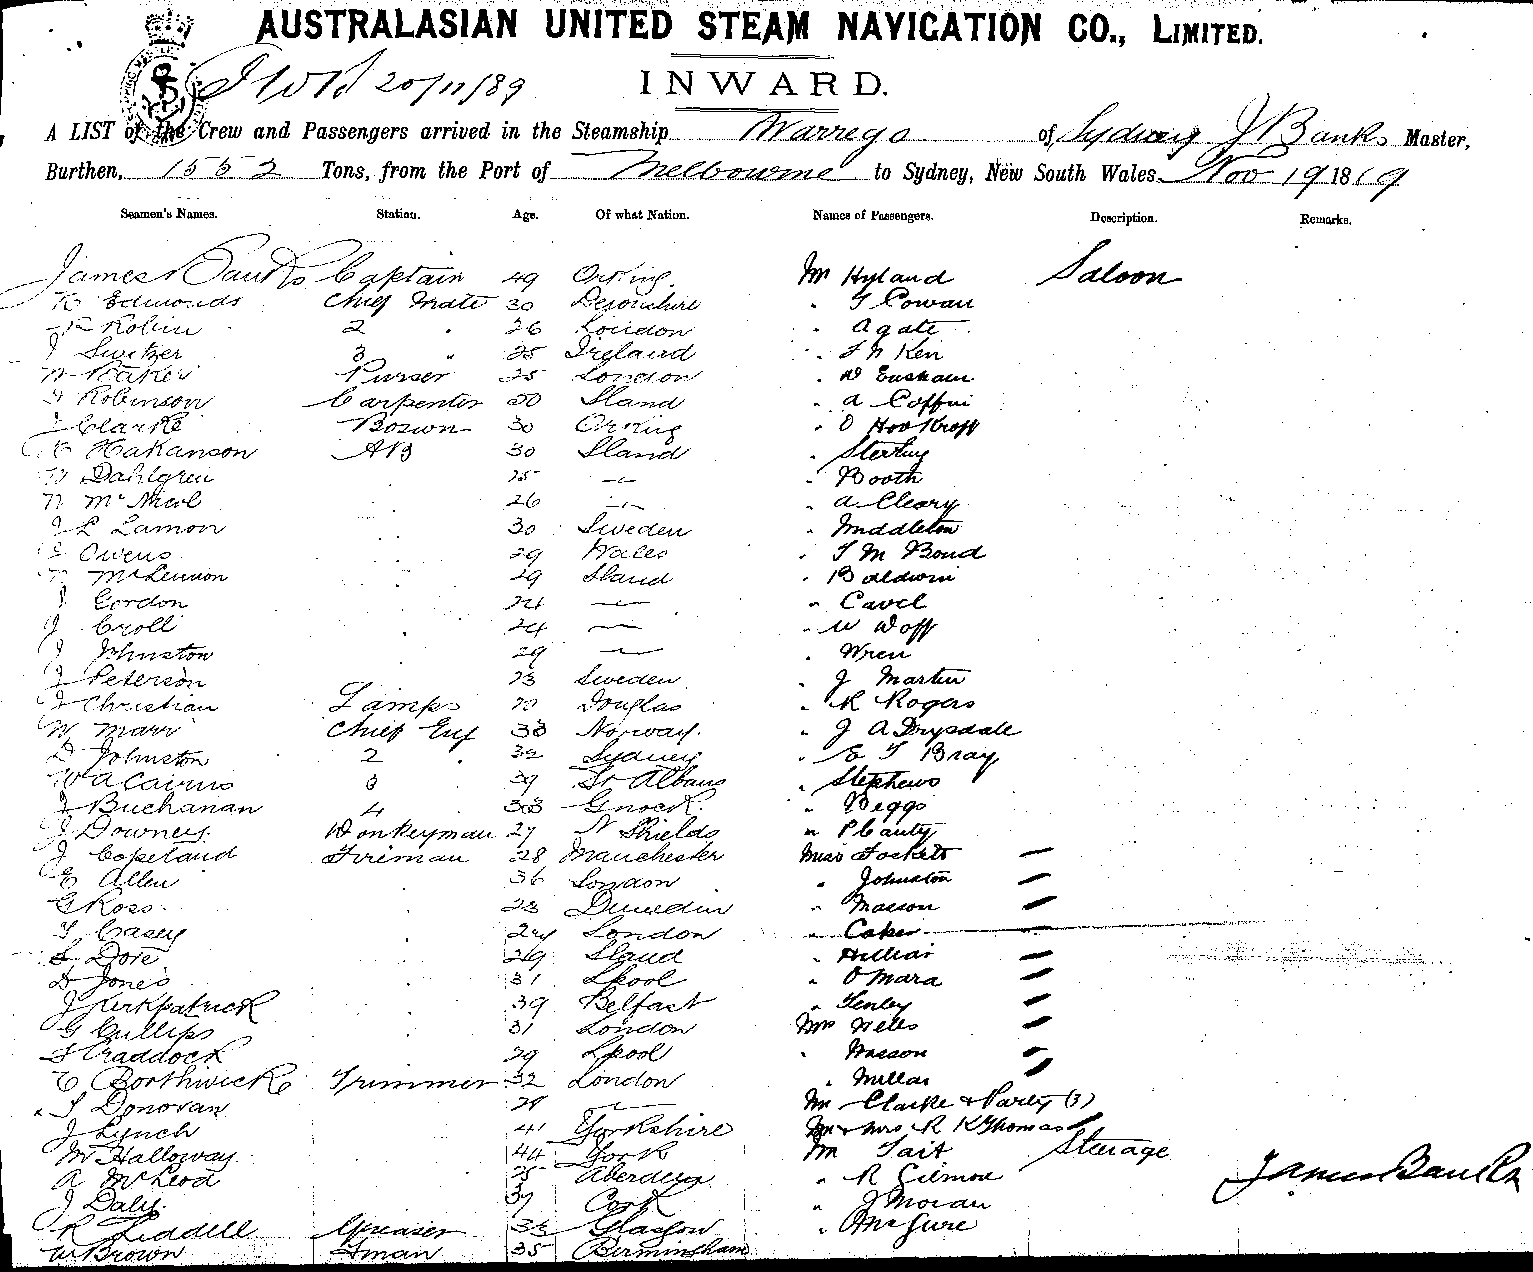 AUSTRALASIAN UNITED STEAM NAVIGATION CO., LIMITED.
20/11/89 INWARD.
A LIST of the Crew and Passengers arrived in the Steamship Warrego of Sydney J Banks Master,
Burthen, 1552 Tons, from the Port of Melbourne to Sydney, New South Wales. Nov 19 18
Seamen's Names. Station. Age. Of what Nation. Names of Passengers. Description. Remarks.
James Banks Captain 49 Mr Hyland Saloon
Edmonds Chief Mate 30 Devonshire " Cowan
Robin 2 " 26 London " Agate
J Switzer 3 " 25 Ireland "
Baker Purser 25 London "
Robinson Carpenter Sland " A Coffin
J Clarke Boswn 30 "
Hakanson AB 30 Sland " Sterling
Dahlgren 25 — " Booth
N McNicol 26 — " A Cleary
J L Lamon 30 Sweden " Middleton
Owens 29 Wales " T M Bond
McLennon 29 Sland " Baldwin
J Gordon 24 — " Cavel
J Croll 24 — " W Woff
J Johnston 29 — " Wren
J Peterson 23 Sweden " J Martin
J Christian Lamps Douglas " R Rogers
W Marr Chief Eng 38 Norway " J A Drysdale
D Johnston 2 " 32 Sydney " E T Bray
W A Cairns 3 39 St Albans " Stephens
J Buchanan 4 33 Gnock " Beggs
J Downey Donkeyman 27 N Shields " P Canty
J Copeland Fireman 28 Manchester Miss Lockett —
E Allen 36 London " Johnston —
G Ross 28 Dunedin " Masson —
T Casey 24 London " Caker —
S Dore 29 Sland " Hilliar —
D Jones 31 Lpool " O'Mara —
J Kirkpatrick 39 Belfast " Fenley —
G Cullips 31 London Mrs Wells —
Craddock 29 Lpool " Wasson —
E Borthwick Trimmer 32 London " Millar —
T Donovan 29 — Mr Clarke & Party (3)
J Lynch 41 Yorkshire Mr & Mrs R K Thomas
M Halloway 44 York Mr Tait Steerage
A McLeod 25 Aberdeen " R Gilmore
J Daly 37 Cork " J Moran
R Liddell Greaser 33 Glasgow " McGuire
W Brown Fman 35 Bermingham
James Banks